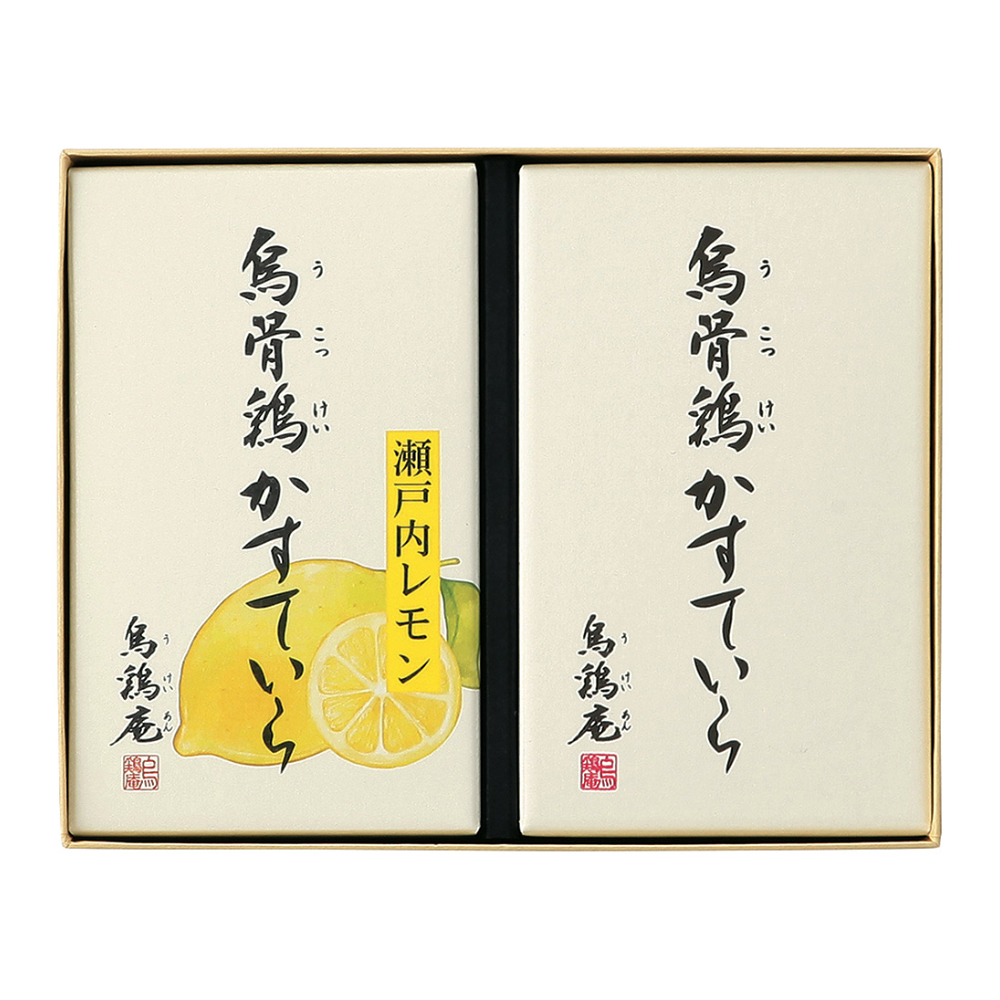 烏骨鶏かすていら
うこっけい
瀬戸内レモン
烏鶏庵
うけいあん
烏鶏庵
烏骨鶏かすていら
うこっけい
烏鶏庵
うけいあん
烏鶏庵